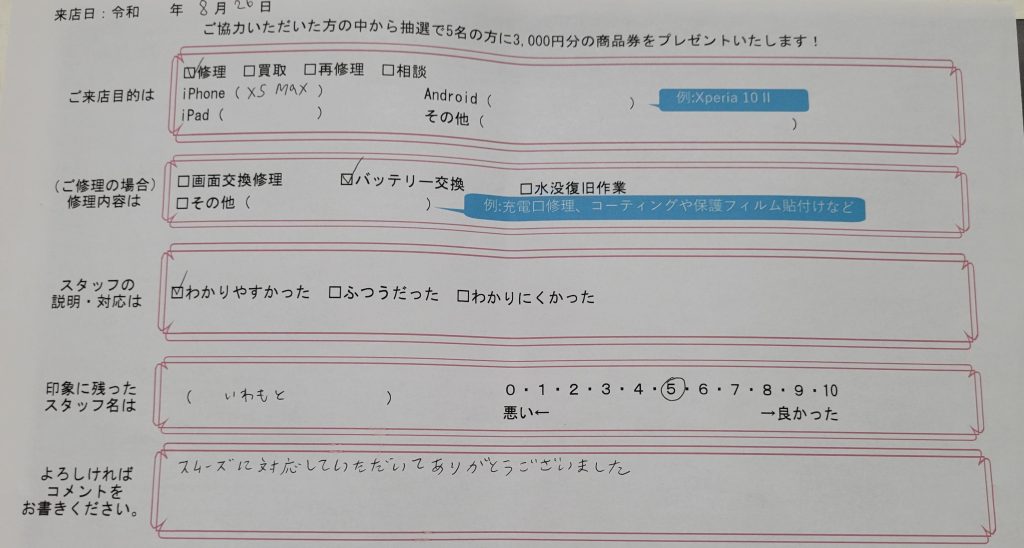 来店日：令和　年 8月26日
ご協力いただいた方の中から抽選で5名の方に3,000円分の商品券をプレゼントいたします！
ご来店目的は
☑修理 □買取 □再修理 □相談
iPhone（ XS MAX ） Android（　） 例:Xperia 10 II
iPad（　） その他（　）
（ご修理の場合）
修理内容は
□画面交換修理 ☑バッテリー交換 □水没復旧作業
□その他（　） 例:充電口修理、コーティングや保護フィルム貼付けなど
スタッフの
説明・対応は
☑わかりやすかった □ふつうだった □わかりにくかった
印象に残った
スタッフ名は
（ いわもと ） 0・1・2・3・4・5・6・7・8・9・10
悪い← →良かった
よろしければ
コメントを
お書きください。
スムーズに対応していただいてありがとうございました